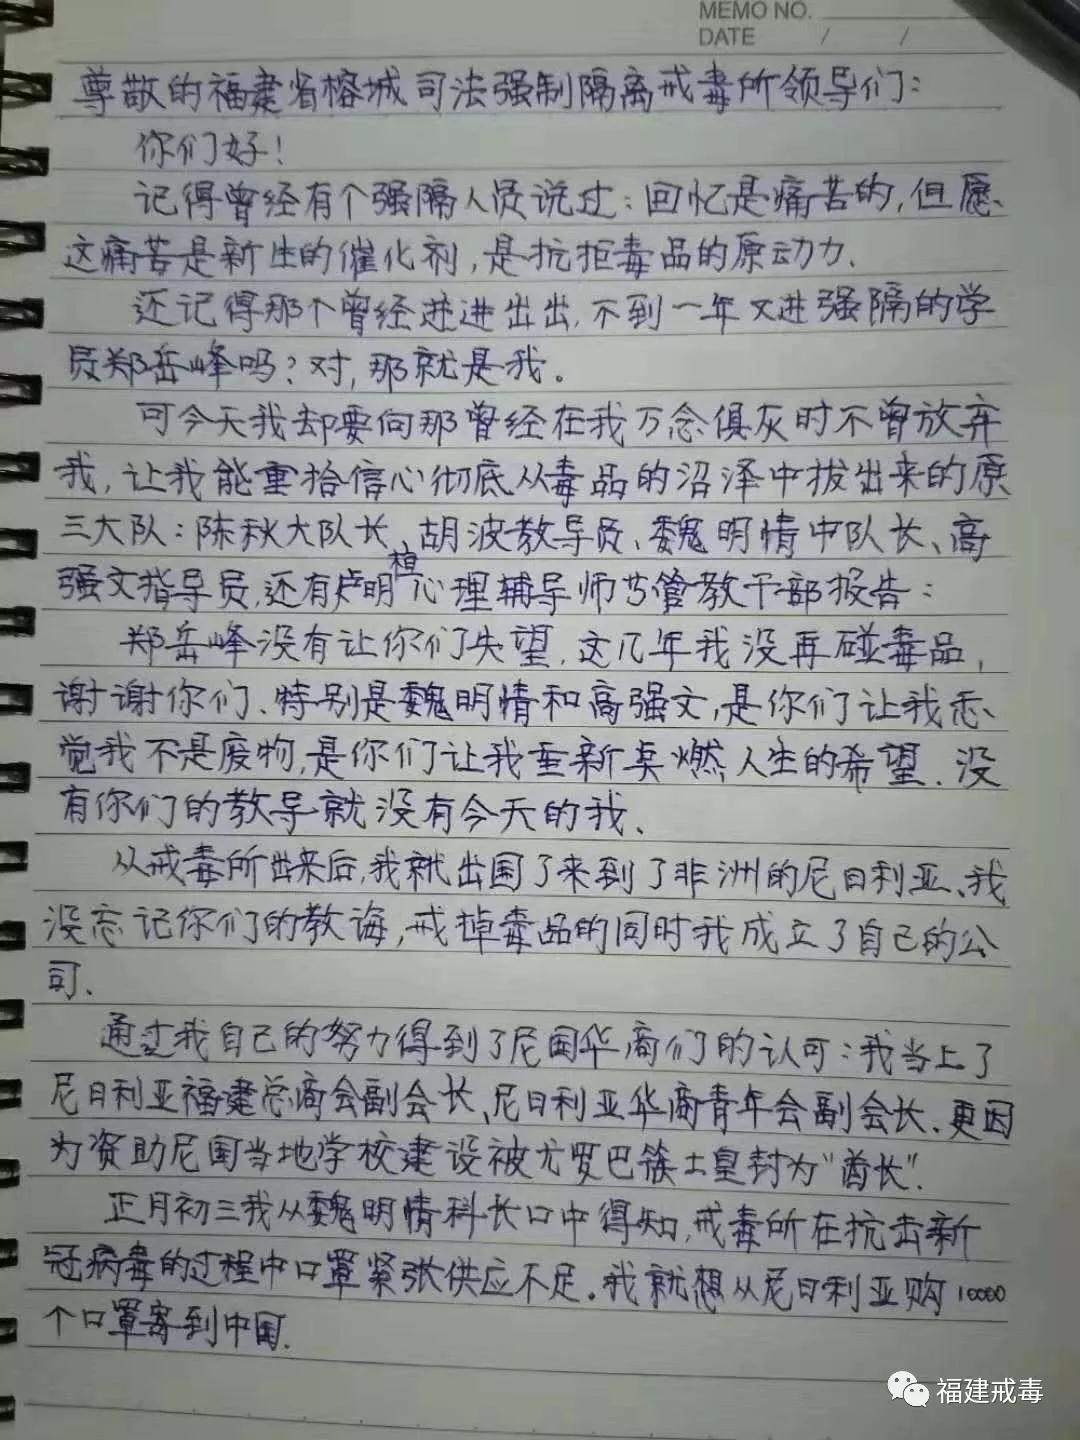 MEMO NO.
DATE / /
尊敬的福建省榕城司法强制隔离戒毒所领导们：
你们好！
记得曾经有个强隔人员说过：回忆是痛苦的，但愿
这痛苦是新生的催化剂，是抗拒毒品的原动力、
还记得那个曾经进进出出，不到一年又进强隔的学
员郑岳峰吗？对，那就是我。
可今天我却要向那曾经在我万念俱灰时不曾放弃
我，让我能重拾信心彻底从毒品的沼泽中拔出来的原
三大队：陈秋大队长、胡波教导员、魏明情中队长、高
强文指导员，还有卢明桓心理辅导师等管教干部报告：
郑岳峰没有让你们失望，这几年我没再碰毒品，
谢谢你们、特别是魏明情和高强文，是你们让我
觉我不是废物，是你们让我重新点燃人生的希望、没
有你们的教导就没有今天的我、
从戒毒所出来后，我就出国了来到了非洲的尼日利亚、我
没忘记你们的教诲，戒掉毒品的同时我成立了自己的公
司、
通过我自己的努力得到了尼国华商们的认可：我当上了
尼日利亚福建总商会副会长、尼日利亚华商青年会副会长、更因
为资助尼国当地学校建设被尤罗巴族土皇封为“酋长”.
正月初三我从魏明情科长口中得知，戒毒所在抗击新
冠病毒的过程中口罩紧张供应不足。我就想从尼日利亚购10000
个口罩寄到中国.
福建戒毒